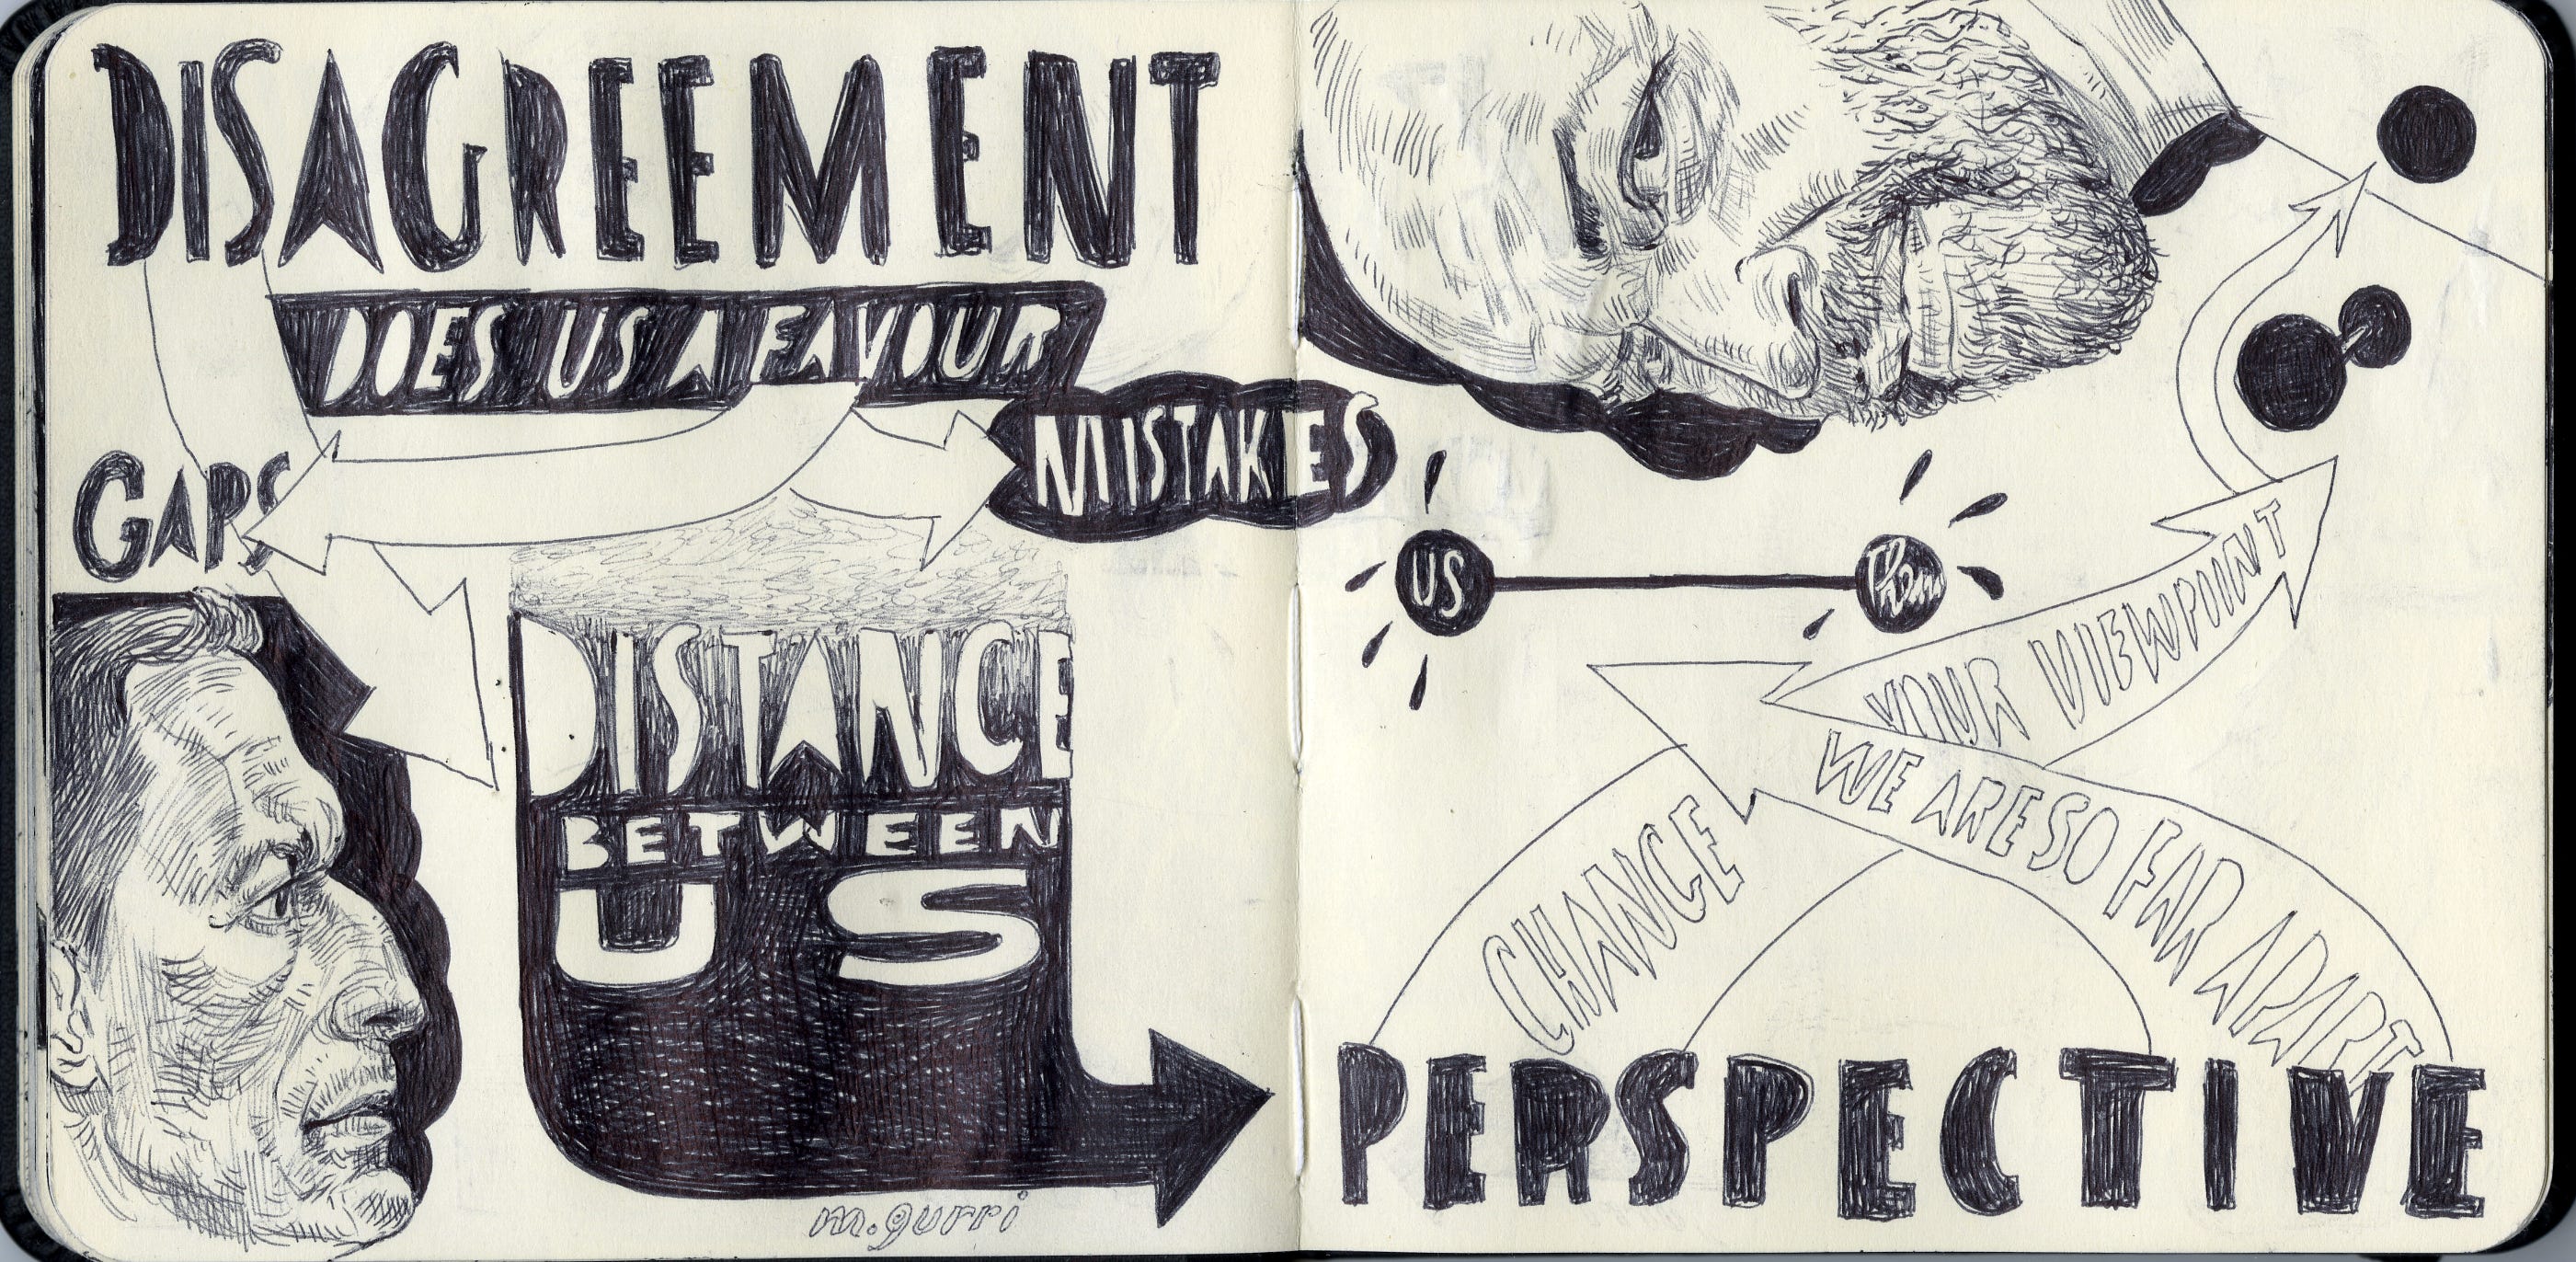 DISAGREEMENT
DOES US A FAVOUR
MISTAKES
GAPS
DISTANCE
BETWEEN
US
m.gurri
US
Them
YOUR VIEWPOINT
WE ARE SO FAR APART
CHANCE
PERSPECTIVE